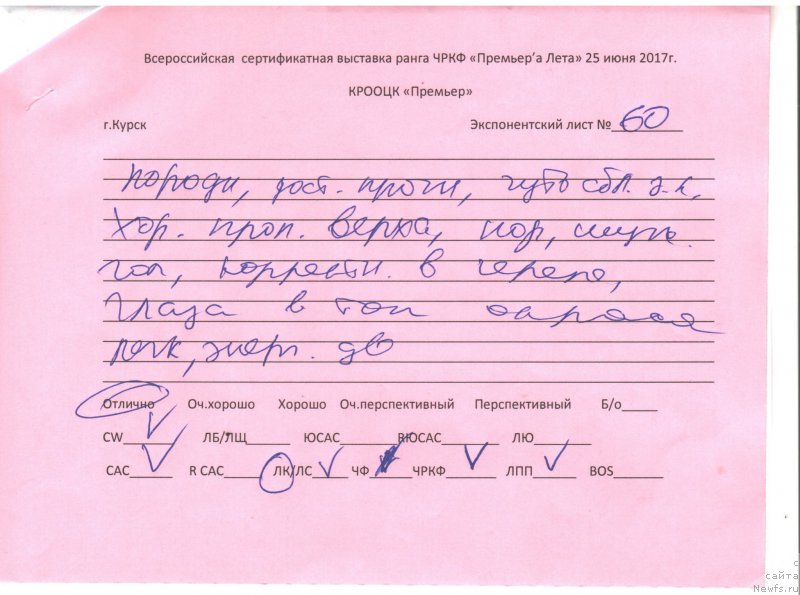 Всероссийская сертификатная выставка ранга ЧРКФ «Премьер’а Лета» 25 июня 2017г.
КРООЦК «Премьер»
г.Курск Экспонентский лист № 60
породн, рост. прочн, чуть сбл. з.к,
Хор. проп. верха, нор,
гол, корректн. в черепе,
глаза в тон окраса
легк, энерг. дв
Отлично Оч.хорошо Хорошо Оч.перспективный Перспективный Б/о
CW ЛБ/ЛЩ ЮСАС RЮСАС ЛЮ
САС R САС ЛК/ЛС ЧФ ЧРКФ ЛПП BOS
с
сайта
Newfs.ru